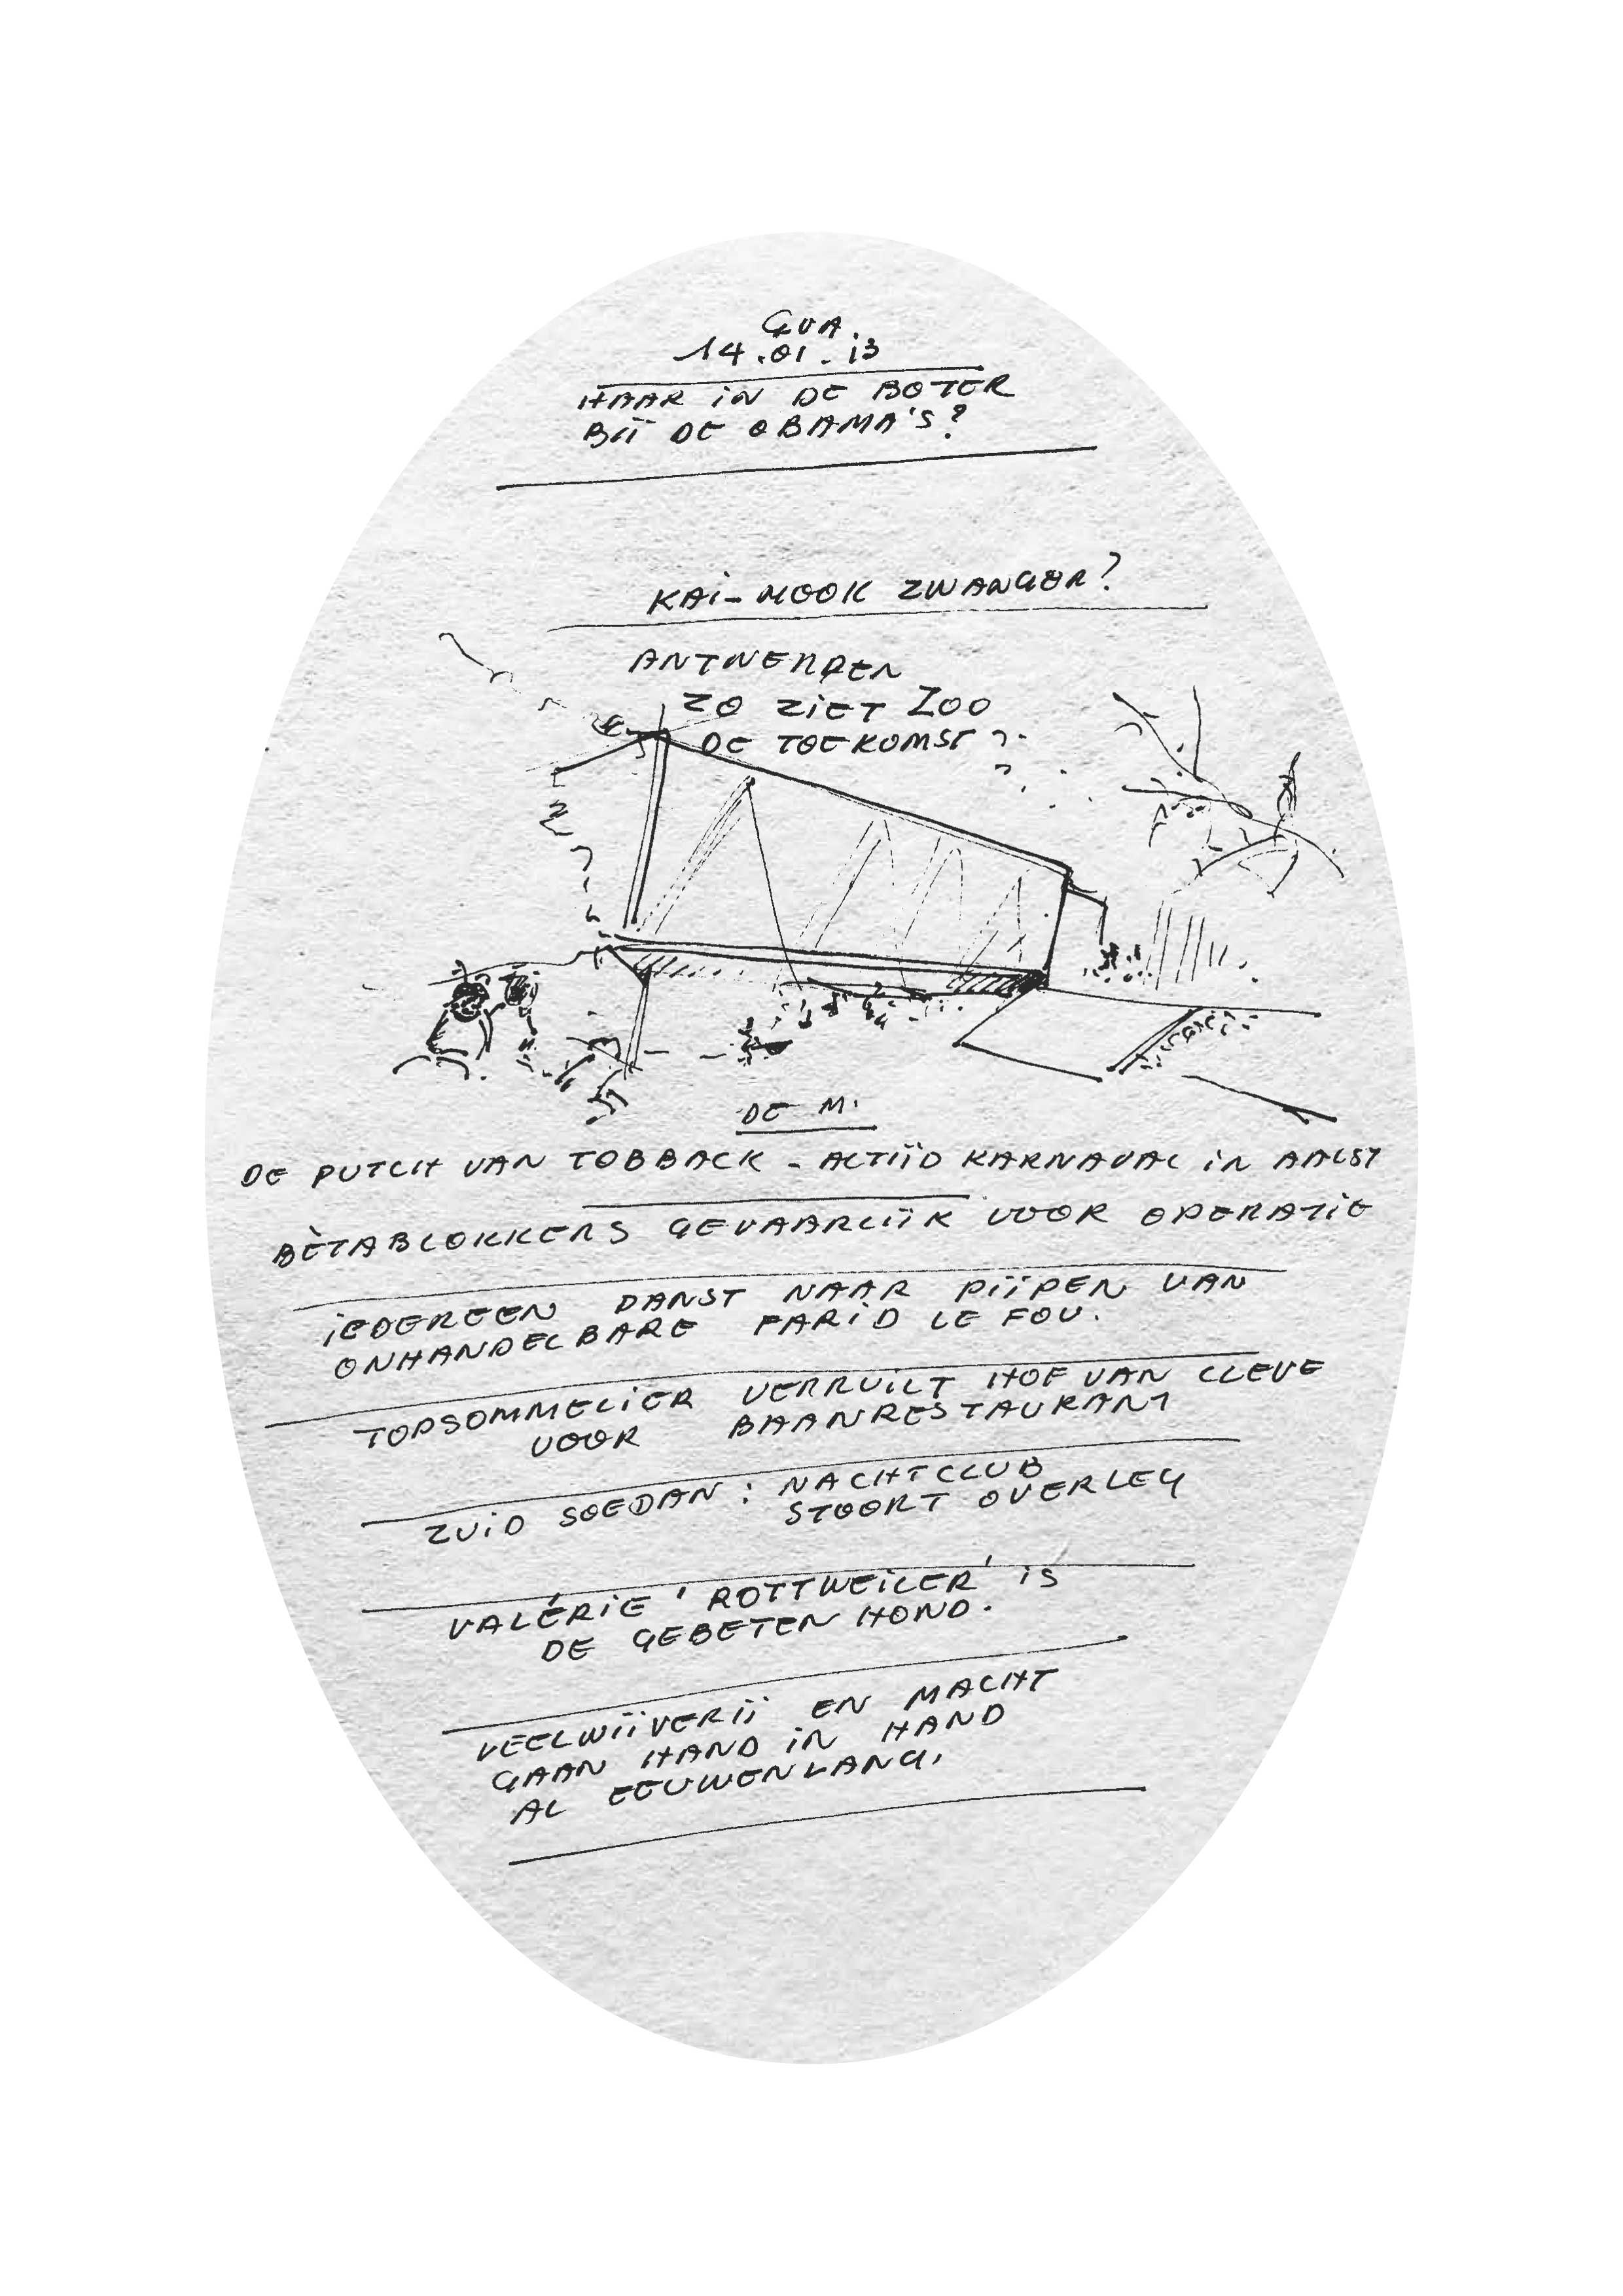 GVA.
14.01.13
HAAR IN DE BOTER
BIJ DE OBAMA'S?
KAI-MOOK ZWANGER?
ANTWERPEN
ZO ZIET ZOO
DE TOEKOMST
DE M.
DE PUTCH VAN TOBBACK - ALTIJD KARNAVAL IN AALST
BÈTABLOKKERS GEVAARLIJK VOOR OPERATIE
IEDEREEN DANST NAAR PIJPEN VAN
ONHANDELBARE FARID LE FOU.
TOPSOMMELIER VERRUILT HOF VAN CLEVE
VOOR BAANRESTAURANT
ZUID SOEDAN : NACHTCLUB
STOORT OVERLEG
VALÉRIE 'ROTTWEILER' IS
DE GEBETEN HOND.
VEELWIJVERIJ EN MACHT
GAAN HAND IN HAND
AL EEUWENLANG.